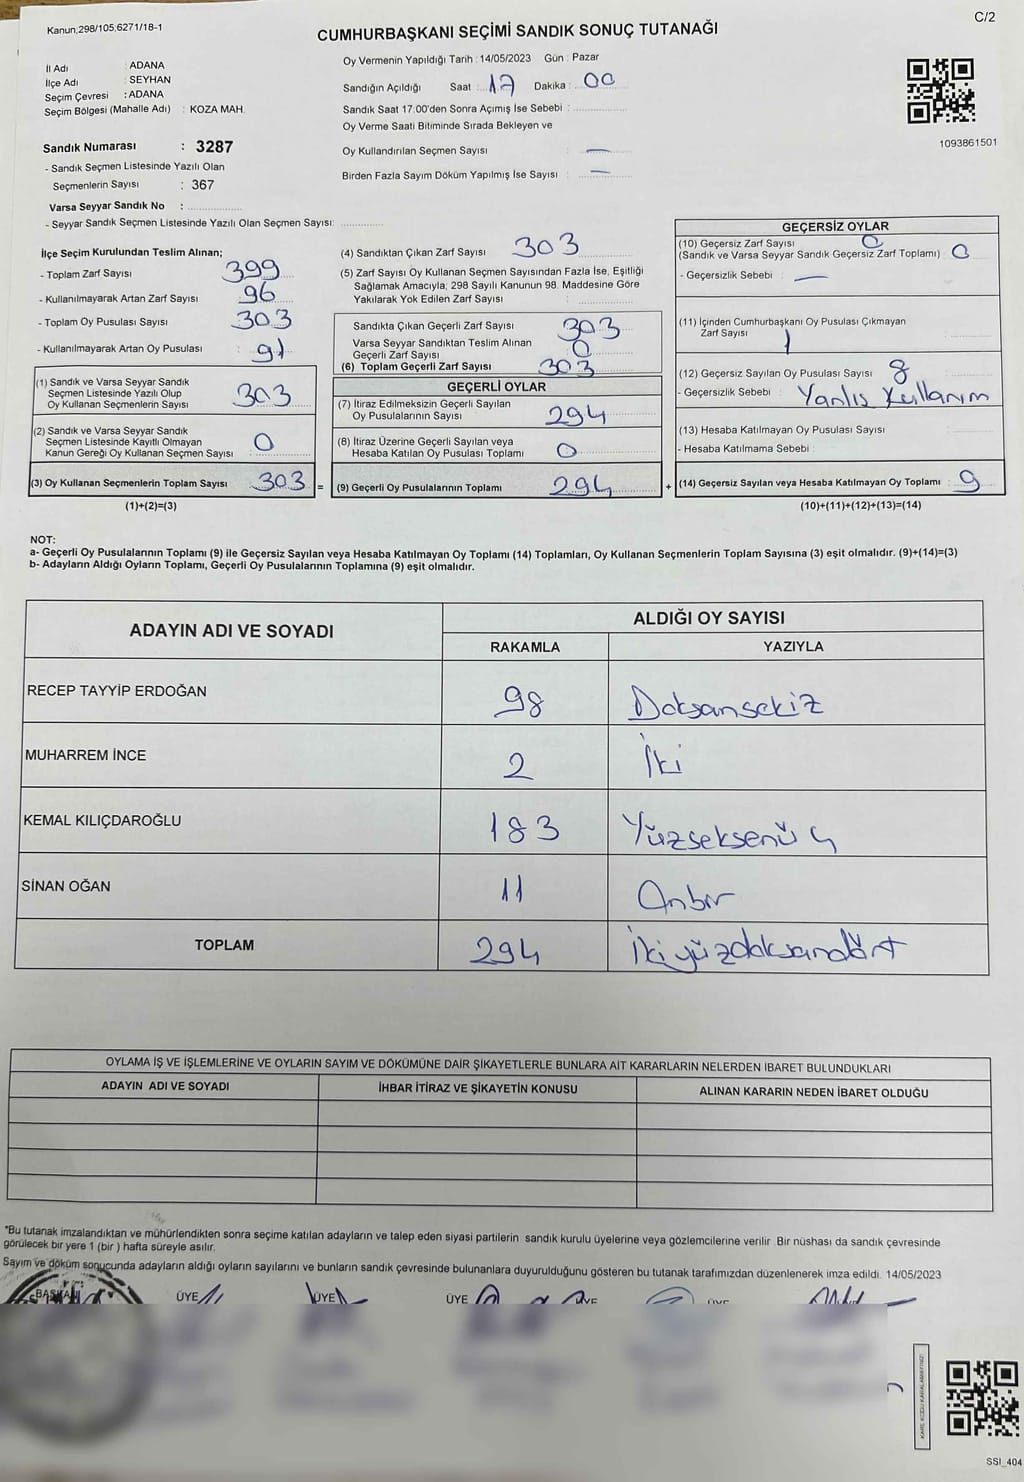 Kanun;298/105;6271/18-1
C/2
CUMHURBAŞKANI SEÇİMİ SANDIK SONUÇ TUTANAĞI
İl Adı : ADANA
İlçe Adı : SEYHAN
Seçim Çevresi : ADANA
Seçim Bölgesi (Mahalle Adı) : KOZA MAH.
Oy Vermenin Yapıldığı Tarih : 14/05/2023 Gün : Pazar
Sandığın Açıldığı Saat : 17 Dakika : 00
Sandık Saat 17.00'den Sonra Açımış İse Sebebi :
Oy Verme Saati Bitiminde Sırada Bekleyen ve
Oy Kullandırılan Seçmen Sayısı : —
Birden Fazla Sayım Döküm Yapılmış İse Sayısı : —
1093861501
Sandık Numarası : 3287
- Sandık Seçmen Listesinde Yazılı Olan
Seçmenlerin Sayısı : 367
Varsa Seyyar Sandık No :
- Seyyar Sandık Seçmen Listesinde Yazılı Olan Seçmen Sayısı:
İlçe Seçim Kurulundan Teslim Alınan;
- Toplam Zarf Sayısı : 399
- Kullanılmayarak Artan Zarf Sayısı : 96
- Toplam Oy Pusulası Sayısı : 303
- Kullanılmayarak Artan Oy Pusulası : 91
(1) Sandık ve Varsa Seyyar Sandık
Seçmen Listesinde Yazılı Olup
Oy Kullanan Seçmenlerin Sayısı : 303
(2) Sandık ve Varsa Seyyar Sandık
Seçmen Listesinde Kayıtlı Olmayan
Kanun Gereği Oy Kullanan Seçmen Sayısı : 0
(3) Oy Kullanan Seçmenlerin Toplam Sayısı : 303
(1)+(2)=(3)
(4) Sandıktan Çıkan Zarf Sayısı : 303
(5) Zarf Sayısı Oy Kullanan Seçmen Sayısından Fazla İse, Eşitliği
Sağlamak Amacıyla; 298 Sayılı Kanunun 98. Maddesine Göre
Yakılarak Yok Edilen Zarf Sayısı :
Sandıkta Çıkan Geçerli Zarf Sayısı : 303
Varsa Seyyar Sandıktan Teslim Alınan
Geçerli Zarf Sayısı : 0
(6) Toplam Geçerli Zarf Sayısı : 303
GEÇERLİ OYLAR
(7) İtiraz Edilmeksizin Geçerli Sayılan
Oy Pusulalarının Sayısı : 294
(8) İtiraz Üzerine Geçerli Sayılan veya
Hesaba Katılan Oy Pusulası Toplamı : 0
= (9) Geçerli Oy Pusulalarının Toplamı : 294
GEÇERSİZ OYLAR
(10) Geçersiz Zarf Sayısı 0
(Sandık ve Varsa Seyyar Sandık Geçersiz Zarf Toplamı) : 0
- Geçersizlik Sebebi : —
(11) İçinden Cumhurbaşkanı Oy Pusulası Çıkmayan
Zarf Sayısı 1
(12) Geçersiz Sayılan Oy Pusulası Sayısı : 8
- Geçersizlik Sebebi : Yanlış Kullanım
(13) Hesaba Katılmayan Oy Pusulası Sayısı :
- Hesaba Katılmama Sebebi :
+ (14) Geçersiz Sayılan veya Hesaba Katılmayan Oy Toplamı : 9
(10)+(11)+(12)+(13)=(14)
NOT:
a- Geçerli Oy Pusulalarının Toplamı (9) ile Geçersiz Sayılan veya Hesaba Katılmayan Oy Toplamı (14) Toplamları, Oy Kullanan Seçmenlerin Toplam Sayısına (3) eşit olmalıdır. (9)+(14)=(3)
b- Adayların Aldığı Oyların Toplamı, Geçerli Oy Pusulalarının Toplamına (9) eşit olmalıdır.
ADAYIN ADI VE SOYADI
ALDIĞI OY SAYISI
RAKAMLA YAZIYLA
RECEP TAYYİP ERDOĞAN 98 Doksansekiz
MUHARREM İNCE 2 İki
KEMAL KILIÇDAROĞLU 183 Yüzseksenüç
SİNAN OĞAN 11 Onbir
TOPLAM 294 İkiyüzdoksandört
OYLAMA İŞ VE İŞLEMLERİNE VE OYLARIN SAYIM VE DÖKÜMÜNE DAİR ŞİKAYETLERLE BUNLARA AİT KARARLARIN NELERDEN İBARET BULUNDUKLARI
ADAYIN ADI VE SOYADI İHBAR İTİRAZ VE ŞİKAYETİN KONUSU ALINAN KARARIN NEDEN İBARET OLDUĞU
*Bu tutanak imzalandıktan ve mühürlendikten sonra seçime katılan adayların ve talep eden siyasi partilerin sandık kurulu üyelerine veya gözlemcilerine verilir. Bir nüshası da sandık çevresinde
görülecek bir yere 1 (bir ) hafta süreyle asılır.
Sayım ve döküm sonucunda adayların aldığı oyların sayılarını ve bunların sandık çevresinde bulunanlara duyurulduğunu gösteren bu tutanak tarafımızdan düzenlenerek imza edildi. 14/05/2023
BAŞKAN ÜYE ÜYE ÜYE ÜYE ÜYE
SSI_404